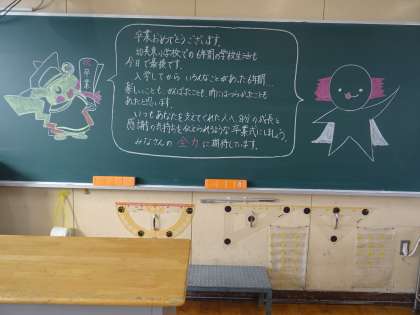 卒業おめでとうございます。
小学校での6年間の学校生活も
今日で最後です。
入学してから いろんなことがあった6年間…
楽しいことも、がんばったことも、時にはつらかったことも
あったと思います。
いつもあなたを支えてくれた人へ、自分の成長と
感謝の気持ちを伝えられるような 卒業式にしましょう。
みなさんの 全力 に期待しています。
祝
卒業